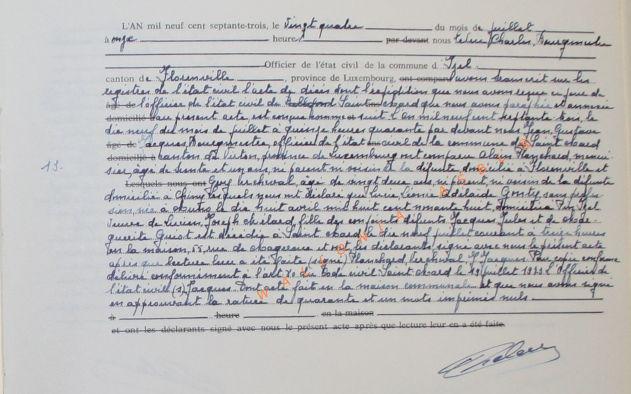 L'AN mil neuf cent septante-trois, le Vingt quatre du mois de juillet
à onze heure, par devant nous Leduc Charles, Bourgmestre
Officier de l'état civil de la commune d' Izel
canton de Florenville, province de Luxembourg, ont comparu avons transcrit sur les
registres de l'état civil l'acte de décès dont l'expédition que nous avons reçue ce jour de
âgé de l'officier de l'état civil de Saint Mard que nous avons paraphée et annexée
domicilié au présent acte, est conçue comme suit L'an mil neuf cent septante trois, le
dix neuf du mois de juillet à quinze heures quarante par devant nous Jean Gustave
âgé de Jacques, Bourgmestre, officier de l'état civil de la commune de Saint Mard
domicilié à canton de Virton, province de Luxembourg ont comparu Alain Blanchard, menui
sier, âge de trente et un ans, ni parent ni voisin de la défunte, domicilié à Florenville et
13.
Lesquels nous ont âgé de vingt deux ans, ni parent, ni voisin de la défunte
domicilié à Chiny, lesquels nous ont déclaré que Marie Lucienne Adelaïde sans profes-
sion, née à le dix huit avril mil huit cent nonante huit, domiciliée à Izel
veuve de Lucien, Joseph fille des conjoints défunts Jacques Jules et de Marguerite
est décédée à Saint Mard le dix neuf juillet courant à treize heures
en la maison, 55, rue de et ont les déclarants signé avec nous le présent acte
après que lecture leur a été faite (signé) Blanchard, J. Jacques. Pour copie conforme
délivré conformément à l'art 80 du code civil Saint Mard le 19 juillet 1973 L'Officier de
l'état civil (s) Jacques. Dont acte fait en la maison communale et que nous avons signé
en approuvant la rature de quarante et un mots imprimés nuls
à heure en la maison
et ont les déclarants signé avec nous le présent acte après que lecture leur en a été faite.